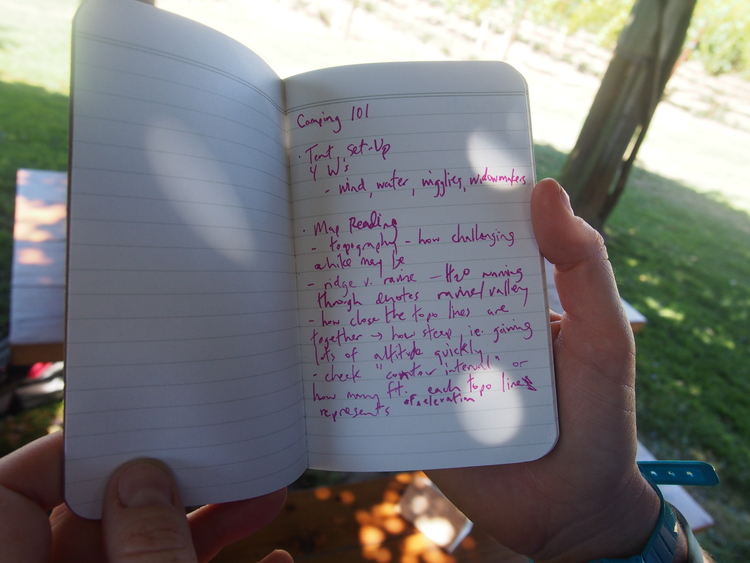 Camping 101
· Tent Set-Up
4 W's
- wind, water, wigglies, widowmakers
· Map Reading
- topography - how challenging
a hike may be
- ridge v. ravine - H2O running
through denotes ravine/valley
- how close the topo lines are
together → how steep i.e. gaining
lots of altitude quickly
- check "contour interval" or
how many ft. each topo line
represents of elevation